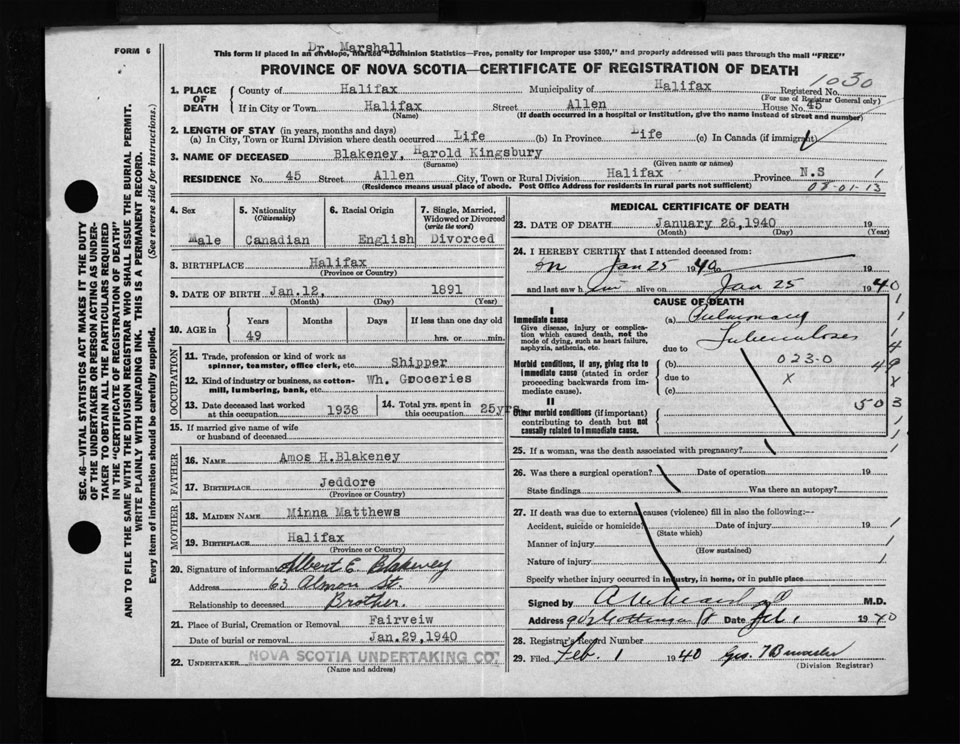 FORM 6
This form if placed in an envelope, marked "Dominion Statistics—Free, penalty for improper use $300," and properly addressed will pass through the mail "FREE"
Dr. Marshall
PROVINCE OF NOVA SCOTIA—CERTIFICATE OF REGISTRATION OF DEATH
1030
1. PLACE OF DEATH
County of Halifax Municipality of Halifax Registered No.
(For use of Registrar General only)
If in City or Town Halifax Street Allen House No. 45
(Name) (If death occurred in a hospital or institution, give the name instead of street and number)
2. LENGTH OF STAY (in years, months and days)
(a) In City, Town or Rural Division where death occurred Life (b) In Province Life (c) In Canada (if immigrant)
3. NAME OF DECEASED Blakeney, Harold Kingsbury
(Surname) (Given name or names)
RESIDENCE No. 45 Street Allen City, Town or Rural Division Halifax Province N.S 1
(Residence means usual place of abode. Post Office Address for residents in rural parts not sufficient) 08-01-13
4. Sex Male
5. Nationality (Citizenship) Canadian
6. Racial Origin English
7. Single, Married, Widowed or Divorced (write the word) Divorced
8. BIRTHPLACE Halifax
(Province or Country)
9. DATE OF BIRTH Jan.12, 1891
(Month) (Day) (Year)
10. AGE in Years Months Days If less than one day old
49 hrs. or min.
OCCUPATION
11. Trade, profession or kind of work as spinner, teamster, office clerk, etc. Shipper
12. Kind of industry or business, as cotton-mill, lumbering, bank, etc. Wh. Groceries
13. Date deceased last worked at this occupation 1938
14. Total yrs. spent in this occupation 25yrs
15. If married give name of wife or husband of deceased
FATHER
16. NAME Amos H.Blakeney
17. BIRTHPLACE Jeddore
(Province or Country)
MOTHER
18. MAIDEN NAME Minna Matthews
19. BIRTHPLACE Halifax
(Province or Country)
20. Signature of informant Albert E. Blakeney
Address 63 Almon St.
Relationship to deceased Brother.
21. Place of Burial, Cremation or Removal Fairveiw
Date of burial or removal Jan.29,1940
22. UNDERTAKER NOVA SCOTIA UNDERTAKING CO.
(Name and address)
MEDICAL CERTIFICATE OF DEATH
23. DATE OF DEATH January 26,1940 19
(Month) (Day) (Year)
24. I HEREBY CERTIFY that I attended deceased from:
on Jan 25 1940 19
and last saw him alive on Jan 25 1940
CAUSE OF DEATH
I
Immediate cause
Give disease, injury or complication which caused death, not the mode of dying, such as heart failure, asphyxia, asthenia, etc.
(a) Pulmonary
due to Tuberculosis
Morbid conditions, if any, giving rise to immediate cause (stated in order proceeding backwards from immediate cause).
(b) 0230
due to X
(c)
II
Other morbid conditions (if important) contributing to death but not causally related to immediate cause.
503
25. If a woman, was the death associated with pregnancy?
26. Was there a surgical operation? Date of operation 19
State findings Was there an autopsy?
27. If death was due to external causes (violence) fill in also the following:—
Accident, suicide or homicide? Date of injury 19
(State which)
Manner of injury
(How sustained)
Nature of injury
Specify whether injury occurred in industry, in home, or in public place
Signed by M.D.
Address Date Feb 1 1940
28. Registrar's Record Number
29. Filed Feb. 1 1940
(Division Registrar)
SEC. 46—VITAL STATISTICS ACT MAKES IT THE DUTY
OF THE UNDERTAKER OR PERSON ACTING AS UNDER-
TAKER TO OBTAIN ALL THE PARTICULARS REQUIRED
IN THE "CERTIFICATE OF REGISTRATION OF DEATH"
AND TO FILE THE SAME WITH THE DIVISION REGISTRAR WHO SHALL ISSUE THE BURIAL PERMIT.
WRITE PLAINLY WITH UNFADING INK. THIS IS A PERMANENT RECORD.
Every item of information should be carefully supplied. (See reverse side for instructions.)